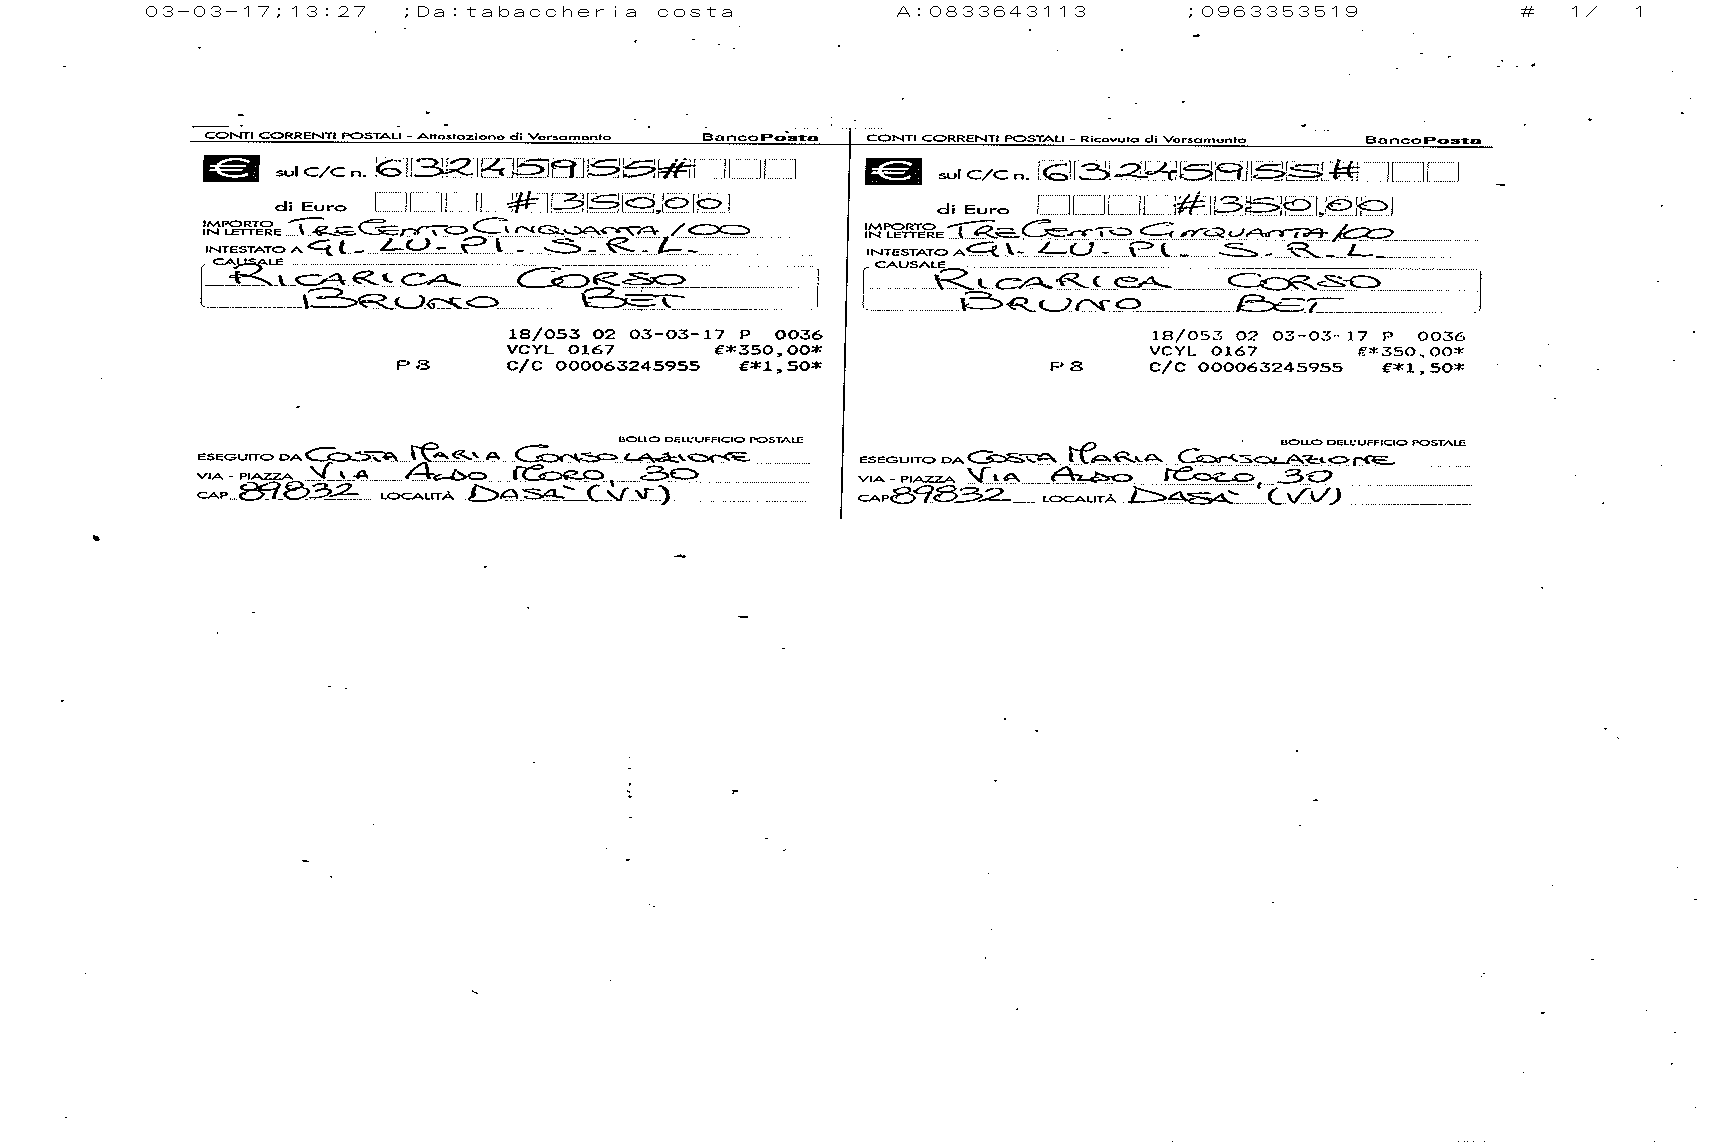 03-03-17;13:27 ;Da:tabaccheria costa A:0833643113 ;0963353519 # 1/ 1
CONTI CORRENTI POSTALI - Attestazione di Versamento BancoPosta
€ sul C/C n. 63245955#
di Euro #350,00
IMPORTO IN LETTERE TRECENTOCINQUANTA/00
INTESTATO A GI. LU. PI. S.R.L.
CAUSALE
RICARICA CORSO
BRUNO BET
18/053 02 03-03-17 P 0036
VCYL 0167 €*350,00*
P 8 C/C 000063245955 €*1,50*
BOLLO DELL'UFFICIO POSTALE
ESEGUITO DA COSTA MARIA CONSOLAZIONE
VIA - PIAZZA VIA ALDO MORO, 30
CAP 89832 LOCALITÀ DASA' (VV)
CONTI CORRENTI POSTALI - Ricevuta di Versamento BancoPosta
€ sul C/C n. 63245955#
di Euro #350,00
IMPORTO IN LETTERE TRECENTO CINQUANTA/00
INTESTATO A GI. LU. PI. S.R.L.
CAUSALE
RICARICA CORSO
BRUNO BET
18/053 02 03-03-17 P 0036
VCYL 0167 €*350,00*
P 8 C/C 000063245955 €*1,50*
BOLLO DELL'UFFICIO POSTALE
ESEGUITO DA COSTA MARIA CONSOLAZIONE
VIA - PIAZZA VIA ALDO MORO, 30
CAP 89832 LOCALITÀ DASA' (VV)